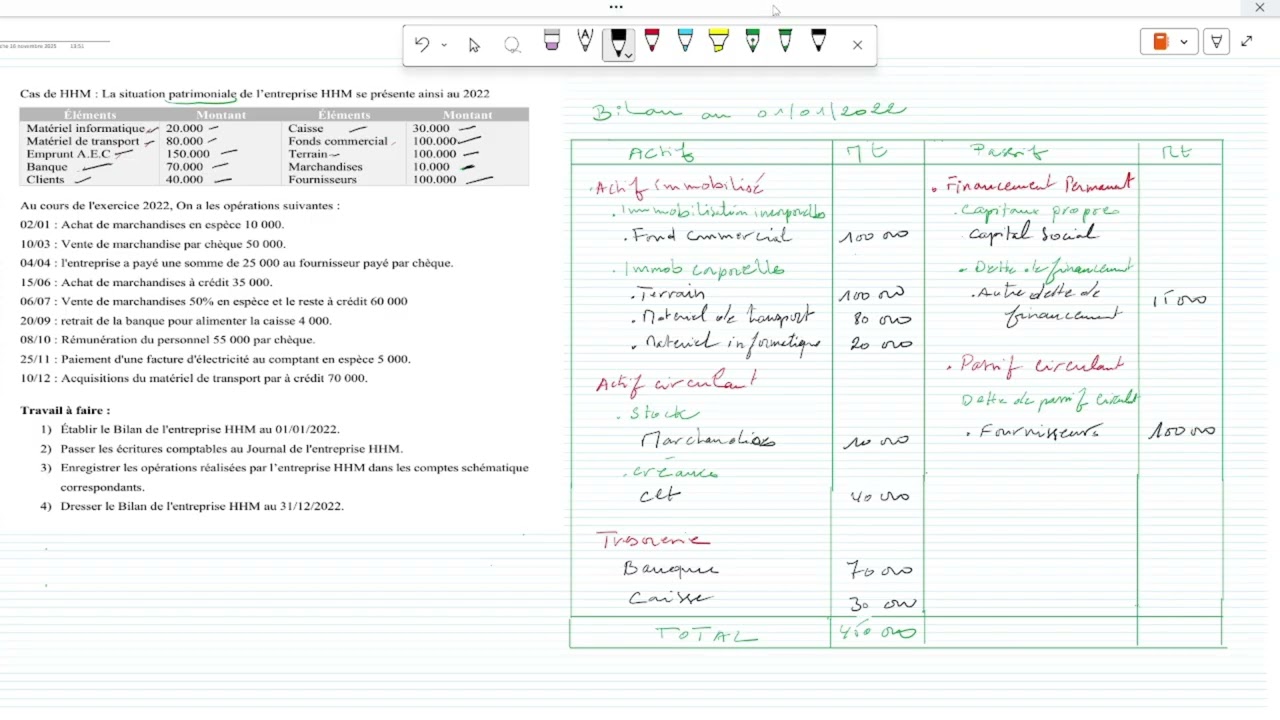 26 novembre 2025 13:51
Cas de HHM : La situation patrimoniale de l'entreprise HHM se présente ainsi au 2022
Éléments Montant Éléments Montant
Matériel informatique 20.000 Caisse 30.000
Matériel de transport 80.000 Fonds commercial 100.000
Emprunt A.E.C 150.000 Terrain 100.000
Banque 70.000 Marchandises 10.000
Clients 40.000 Fournisseurs 100.000
Au cours de l'exercice 2022, On a les opérations suivantes :
02/01 : Achat de marchandises en espèce 10 000.
10/03 : Vente de marchandise par chèque 50 000.
04/04 : l'entreprise a payé une somme de 25 000 au fournisseur payé par chèque.
15/06 : Achat de marchandises à crédit 35 000.
06/07 : Vente de marchandises 50% en espèce et le reste à crédit 60 000
20/09 : retrait de la banque pour alimenter la caisse 4 000.
08/10 : Rémunération du personnel 55 000 par chèque.
25/11 : Paiement d'une facture d'électricité au comptant en espèce 5 000.
10/12 : Acquisitions du matériel de transport par à crédit 70 000.
Travail à faire :
1) Établir le Bilan de l'entreprise HHM au 01/01/2022.
2) Passer les écritures comptables au Journal de l'entreprise HHM.
3) Enregistrer les opérations réalisées par l'entreprise HHM dans les comptes schématique
correspondants.
4) Dresser le Bilan de l'entreprise HHM au 31/12/2022.
Bilan au 01/01/2022
Actif Mt Passif Mt
. Actif immobilisé . Financement Permanent
. Immobilisation incorporelles . Capitaux propres
. Fond commercial 100 000 Capital Social
. Immob corporelles . Dette de financement
. Terrain 100 000 . Autre dette de 15 000
. Materiel de transport 80 000 financement
. Materiel informatique 20 000
Actif circulant . Passif circulant
. Stock Dette de passif circulat
Marchandises 10 000 . Fournisseurs 100 000
. créances
clt 40 000
Tresorerie
Banque 70 000
Caisse 30 000
TOTAL 450 000